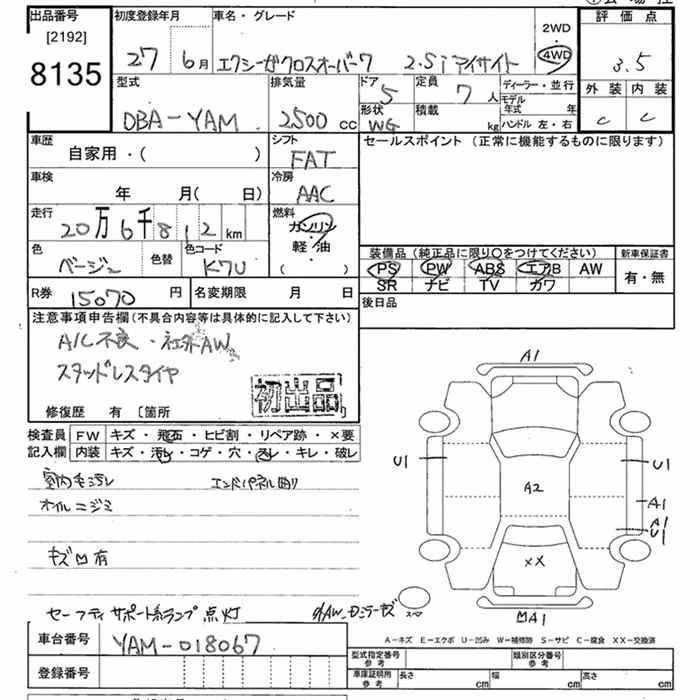 出品番号
[2192]
8135
初度登録年月
27 6月
車名・グレード
エクシーガクロスオーバー7 2.5i アイサイト
2WD
4WD
評価点
3.5
外装 内装
C C
型式
DBA-YAM
排気量
2500 cc
ドア
5
定員
7 人
形状
WG
積載
kg
ディーラー・並行
モデル年式 年
ハンドル 左・右
車歴
自家用・( )
シフト
FAT
セールスポイント (正常に機能するものに限ります)
車検
年 月( 日)
冷房
AAC
走行
20万6千812km
燃料
ガソリン
軽・油
( )
色
ベージュ
色替
色コード
K7U
装備品 (純正品に限り○をつけてください)
PS PW ABS エアB AW
SR ナビ TV カワ
新車保証書
有・無
R券
15070 円
名変期限 月 日
後日品
注意事項申告欄 (不具合内容等は具体的に記入して下さい)
A/C不良・社外AW
スタッドレスタイヤ
初出品
修復歴 有 〔箇所
検査員記入欄
FW キズ・飛石・ヒビ割・リペア跡・×要
内装 キズ・汚れ・コゲ・穴・スレ・キレ・破レ
室内毛汚れ エンドパネル凹り
オイルニジミ
キズ凹有
セーフティサポート系ランプ点灯
A1
U1
U1
A2
A1
A1
U1
XX
スペア
凹A1
A-キズ E-エクボ U-凹み W-補修跡 S-サビ C-腐食 XX-交換済
車台番号
YAM-018067
登録番号
型式指定番号
参考
類別区分番号
参考
車庫証明用
参考
長さ cm
幅 cm
高さ cm